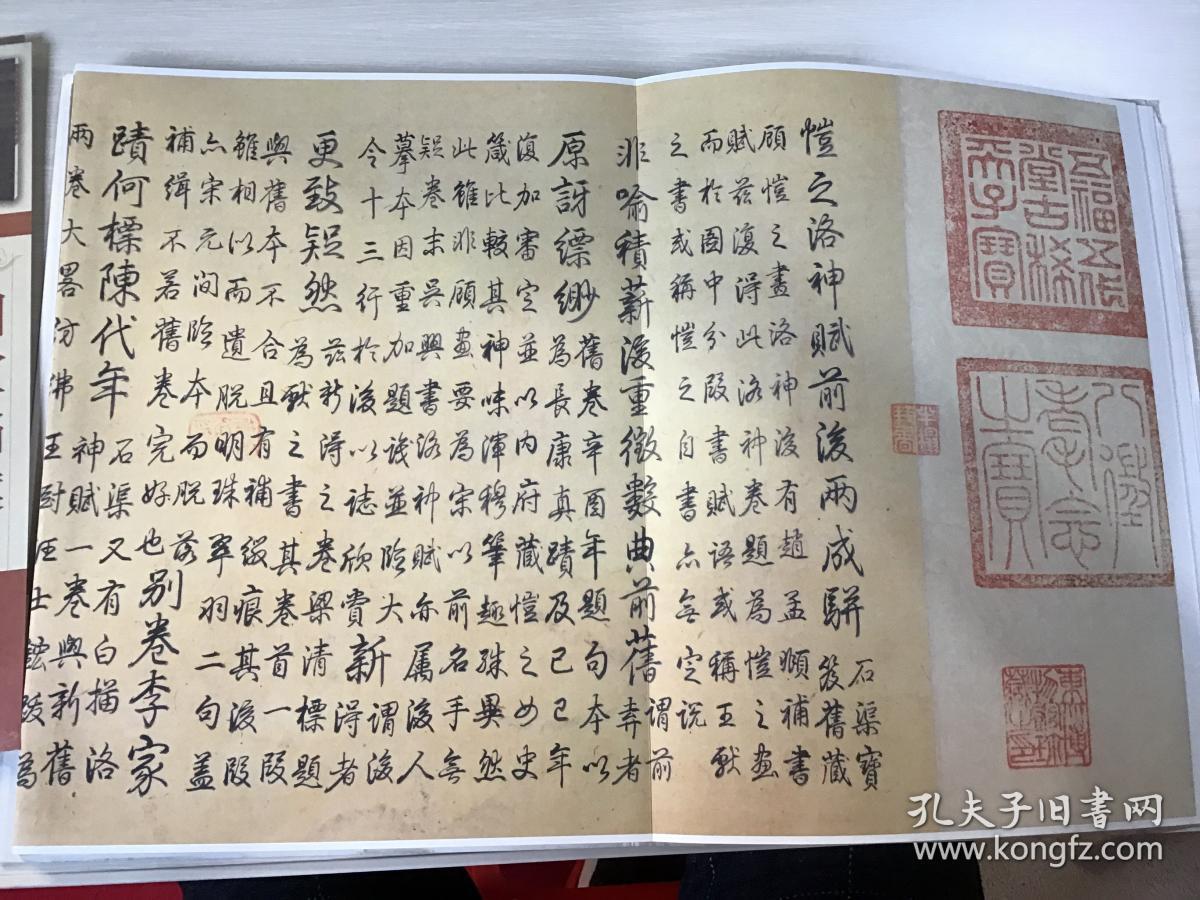 五福五代
堂古稀
天子寶
八徵
耄念
之寶
愷之洛神賦前後兩成駢
石渠寶
笈舊藏
顧愷之畫洛神後有趙孟頫補書
賦茲復得此洛神卷題為愷之畫
而於圖中分段書賦語或稱王獻
之書或稱愷之自書亦無定說
非喻積薪後重徵數典前舊
謂前
弆者
原訝縹緲
舊卷辛酉年題句本以
為長康真蹟及己巳年
復加審定並以內府藏愷之女史
箴比較其神味渾穆筆趣殊異然
此雖非顧畫要為宋以前名手無
疑卷末吳興書洛神賦亦屬後人
摹本因重加題識並臨大
令十三行於後以誌欣賞
新
謂後
得者
更致疑然
茲新得之卷梁清標題
為獻之書其卷首一段
與舊本不合且有補綴痕其後段
雖相似而遺脫明珠翠羽二句蓋
亦宋元間臨本而脫落
補緝不若舊卷完好也
別卷李家
蹟何標陳代年
石渠又有白描洛
神賦一卷與新舊
兩卷大畧彷彿
孔夫子旧书网
www.kongfz.com